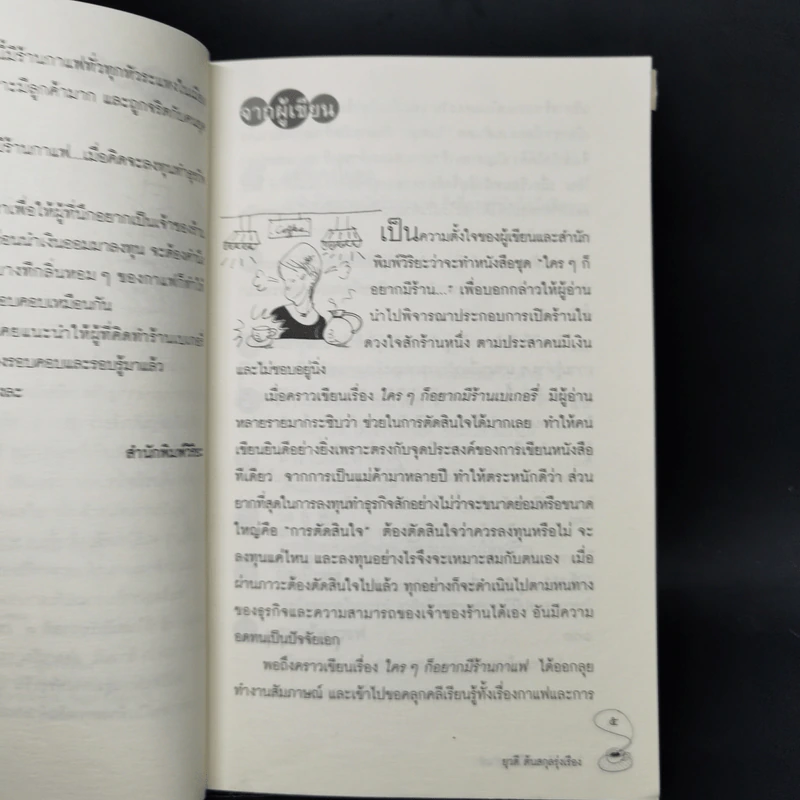 นี้มีร้านกาแฟทั่วทุกหัวระแหงในเมือง
มีลูกค้ามาก และถูกจริตกับคน
มีร้านกาแฟ...เมื่อคิดจะลงทุนทำธุรกิจ
เพื่อให้ผู้ที่นึกอยากเป็นเจ้าของร้าน
ก่อนนำเงินออมมาลงทุน จะต้องคำนึง
บางทีกลิ่นหอม ๆ ของกาแฟก็ทำให้
รอบคอบเหมือนกัน
เคยแนะนำให้ผู้ที่คิดทำร้านเบเกอรี่
รอบคอบและรอบรู้มาแล้ว
สำนักพิมพ์วิริยะ
จากผู้เขียน
Coffee
เป็นความตั้งใจของผู้เขียนและสำนัก
พิมพ์วิริยะว่าจะทำหนังสือชุด "ใคร ๆ ก็
อยากมีร้าน..." เพื่อบอกกล่าวให้ผู้อ่าน
นำไปพิจารณาประกอบการเปิดร้านใน
ดวงใจสักร้านหนึ่ง ตามประสาคนมีเงิน
และไม่ชอบอยู่นิ่ง
เมื่อคราวเขียนเรื่อง ใคร ๆ ก็อยากมีร้านเบเกอรี่ มีผู้อ่าน
หลายรายมากระซิบว่า ช่วยในการตัดสินใจได้มากเลย ทำให้คน
เขียนยินดีอย่างยิ่งเพราะตรงกับจุดประสงค์ของการเขียนหนังสือ
ทีเดียว จากการเป็นแม่ค้ามาหลายปี ทำให้ตระหนักดีว่า ส่วน
ยากที่สุดในการลงทุนทำธุรกิจสักอย่างไม่ว่าจะขนาดย่อมหรือขนาด
ใหญ่คือ "การตัดสินใจ" ต้องตัดสินใจว่าควรลงทุนหรือไม่ จะ
ลงทุนแค่ไหน และลงทุนอย่างไรจึงจะเหมาะสมกับตนเอง เมื่อ
ผ่านภาวะต้องตัดสินใจไปแล้ว ทุกอย่างก็จะดำเนินไปตามหนทาง
ของธุรกิจและความสามารถของเจ้าของร้านได้เอง อันมีความ
อดทนเป็นปัจจัยเอก
พอถึงคราวเขียนเรื่อง ใคร ๆ ก็อยากมีร้านกาแฟ ได้ออกลุย
ทำงานสัมภาษณ์ และเข้าไปขอคลุกคลีเรียนรู้ทั้งเรื่องกาแฟและการ
๕
ยุวดี ตันสกุลรุ่งเรือง